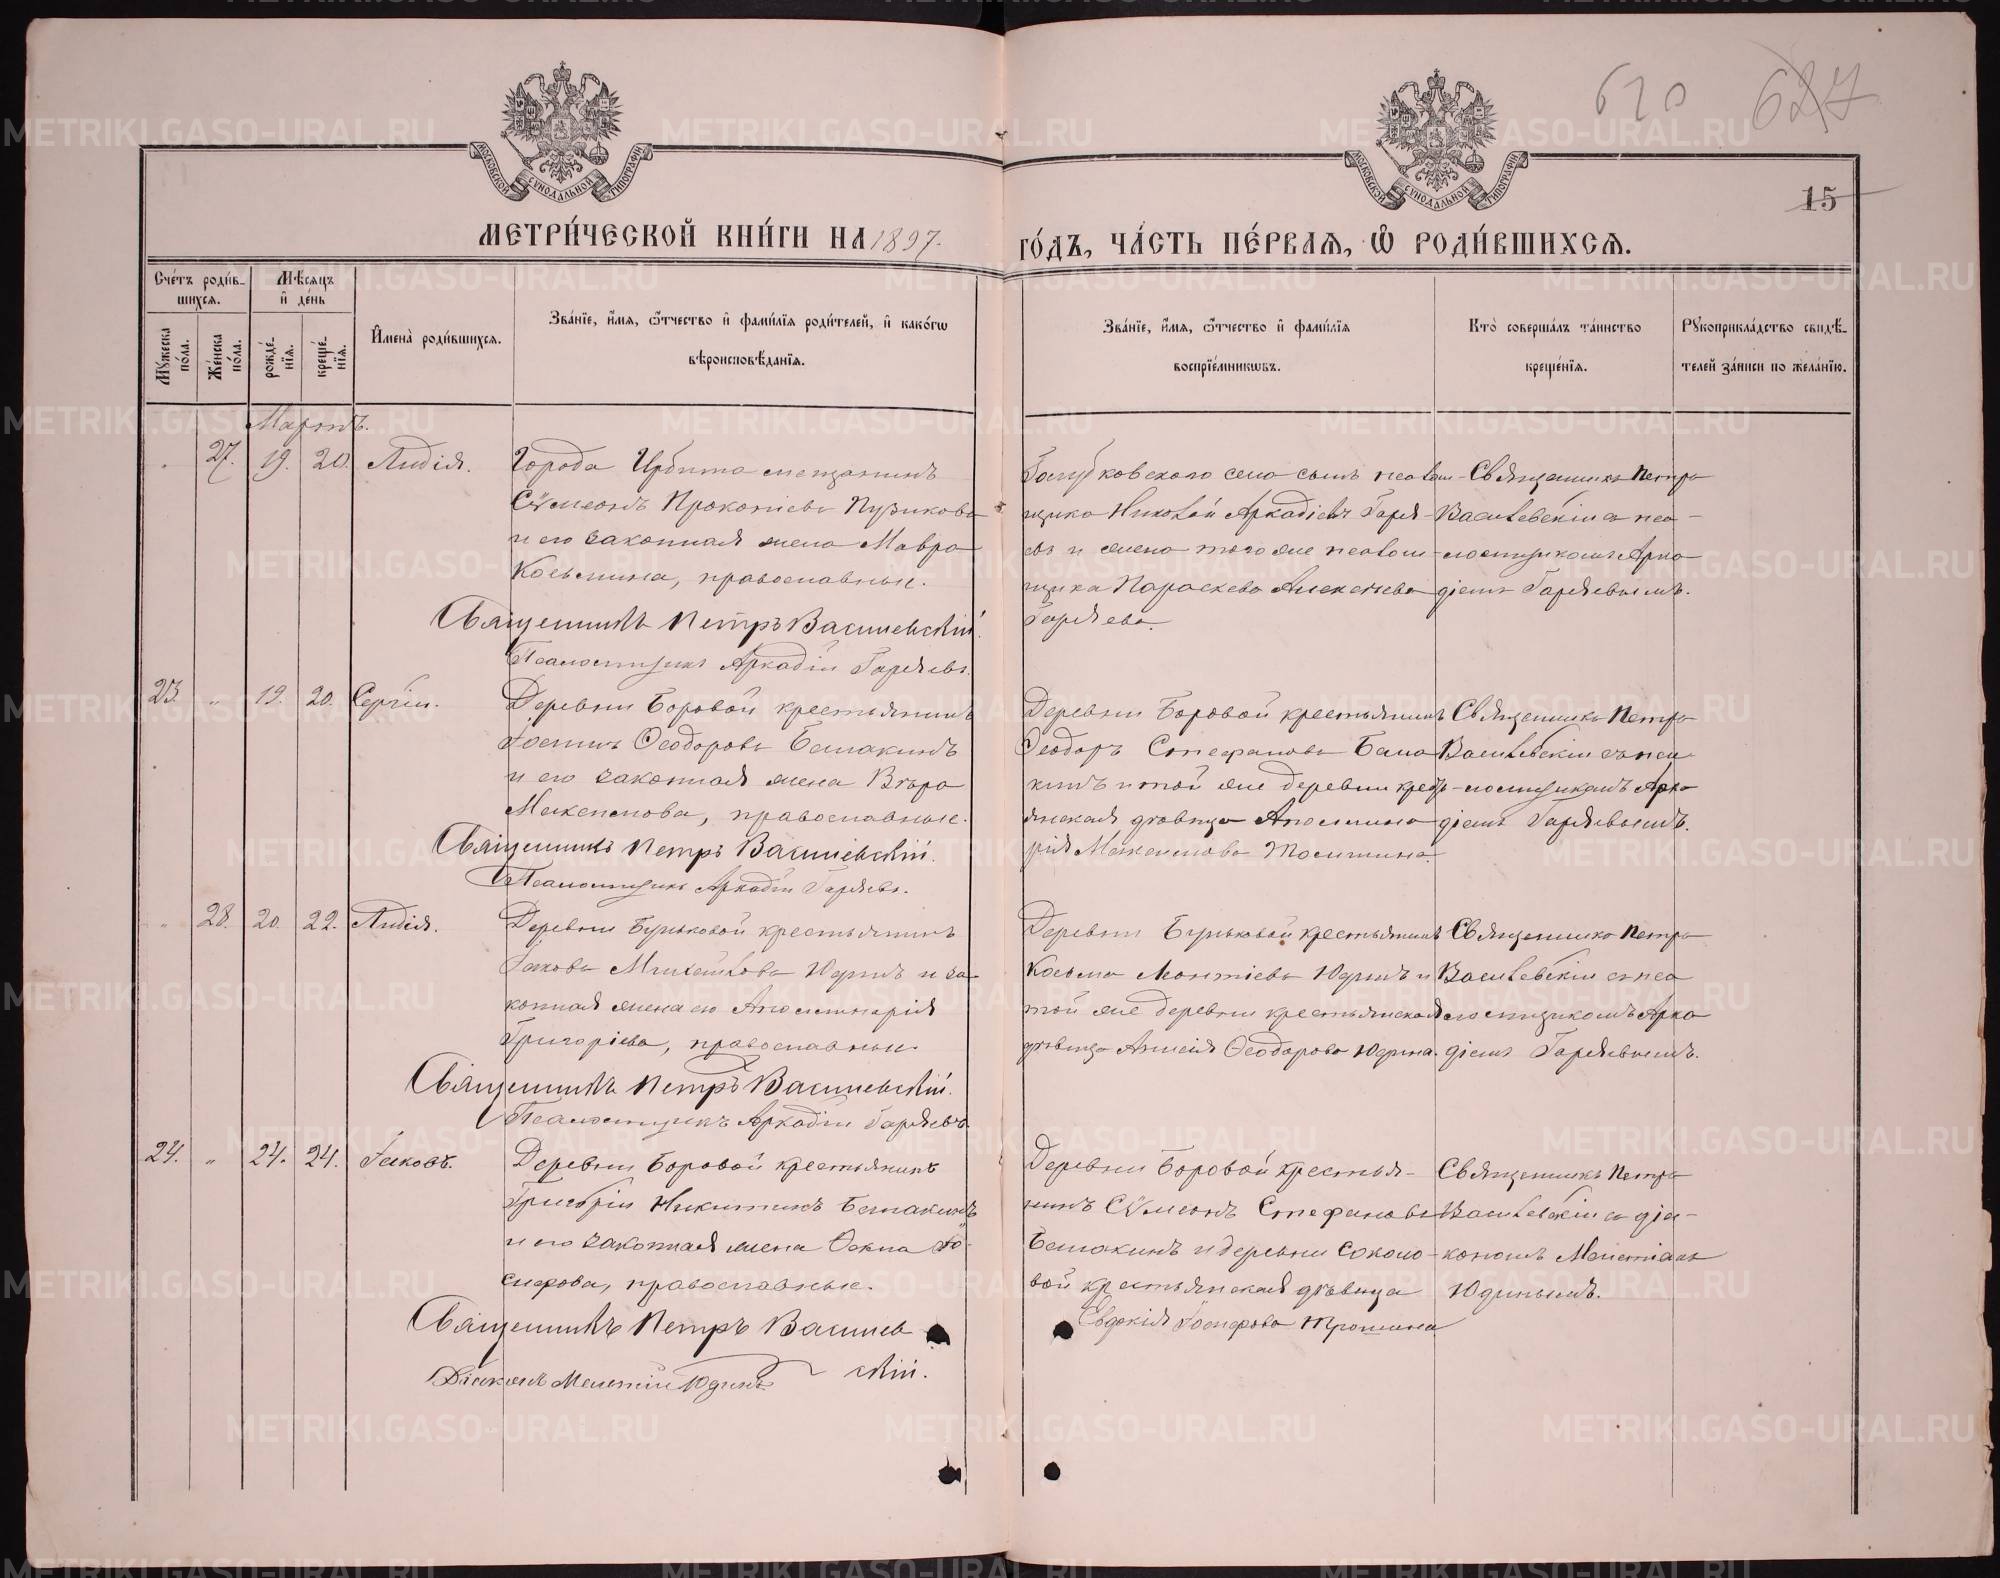 620 627
15
МОСКОВСКОЙ СѴНОДАЛЬНОЙ ТИПОГРАФІИ
МОСКОВСКОЙ СѴНОДАЛЬНОЙ ТИПОГРАФІИ
МЕТРИ́ЧЕСКОЙ КНИ́ГИ НА 1897. ГО́ДЪ, ЧА́СТЬ ПЕ́РВАЯ, Ѽ РОДИ́ВШИХСЯ.
Сче́тъ роди́в-
шихся.
Мꙋжеска по́ла.
Же́нска по́ла.
Мѣ́сяцъ
и҆ де́нь
рожде́-
нїя.
креще́-
нїя.
И҆мена̀ роди́вшихся.
Зва́нїе, и҆́мя, ѻ҆́тчество и҆ фами́лїя роди́телей, и҆ како́гѡ
вѣроисповѣ́данїя.
Зва́нїе, и҆́мя, ѻ҆́тчество и҆ фами́лїя
воспрїе́мникѡвъ.
Кто̀ соверша́лъ та́инство
креще́нїя.
Рꙋкоприкла́дство свидѣ́-
телей за́писи по жела́нїю.
Мартъ.
" 27. 19. 20. Лидія.
Города Ирбита мещанинъ
Сѵмеонъ Прокопіевъ Пузиковъ
и его законная жена Мавра
Косьмина, православные.
Священникъ Петръ Василевскій.
Псаломщикъ Аркадій Гаряевъ.
Голубковскаго села сынъ псалом-
щика Николай Аркадіевъ Гаря-
евъ и жена того же псалом-
щика Параскева Алексѣева
Гаряева.
Священникъ Петръ
Василевскій съ пса-
ломщикомъ Арка
діемъ Гаряевымъ.
23. " 19. 20. Сергій.
Деревни Боровой крестьянинъ
Іоаннъ Ѳеодоровъ Балакинъ
и его законная жена Вѣра
Максимова, православные.
Священникъ Петръ Василевскій.
Псаломщикъ Аркадій Гаряевъ.
Деревни Боровой крестьянинъ
Ѳеодоръ Стефановъ Бала
кинъ и той же деревни крестья-
янская дѣвица Аполлина
рія Максимова
Священникъ Петръ
Василевскій съ пса
ломщикомъ Арка
діемъ Гаряевымъ.
" 28. 20. 22. Лидія.
Деревни Бунковой крестьянинъ
Іаковъ Михайловъ Юдинъ и за-
конная жена его Аполлинарія
Григоріева, православные.
Священникъ Петръ Василевскій.
Псаломщикъ Аркадій Гаряевъ.
Деревни Бунковой крестьянинъ
Косьма Леонтіевъ Юдинъ и
той же деревни крестьянская
дѣвица Анисія Ѳеодорова Юдина.
Священникъ Петръ
Василевскій съ пса
ломщикомъ Арка
діемъ Гаряевымъ.
24. " 24. 24. Іаковъ.
Деревни Боровой крестьянинъ
Григорій Никитинъ Балакинъ
и его законная жена Ѳекла Іо-
сифова, православные.
Священникъ Петръ Василев
скій.
Діаконъ Мелетій Юдинъ.
Деревни Боровой крестья-
нинъ Сѵмеонъ Стефановъ
Балакинъ и деревни Соколо-
вой крестьянская дѣвица
Евдокія Іосифова Трошина
Священникъ Петръ
Василевскій съ діа-
кономъ Мелетіемъ
Юдинымъ.